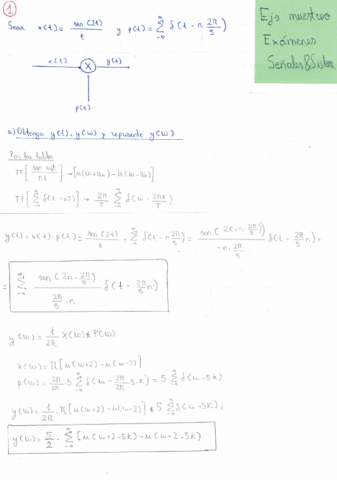 1
Sean x(t) = sen(2t)/t y p(t) = Σ_{-∞}^{∞} δ(t - n 2π/5)
Ejs muestreo
Exámenes
Señales&Sistem
x(t) X y(t)
p(t)
a) Obtenga y(t), y(w) y represente y(w)
Por las tablas
TF[sen w₀t/πt] → [u(w+w₀) - u(w-w₀)]
TF{Σ_{-∞}^{∞} δ(t-nT)} → 2π/T Σ_{-∞}^{∞} δ(w - 2πk/T)
y(t) = x(t)·p(t) = sen(2t)/t · Σ_{-∞}^{∞} δ(t - n 2π/5) = sen(2(-n·2π/5))/-n·2π/5 δ(t - 2π/5 n) =
= Σ_{-∞}^{∞} sen(2n·2π/5)/2π/5·n δ(t - 2π/5 n)
y(w) = 1/2π X(w) * P(w)
X(w) = π[u(w+2) - u(w-2)]
P(w) = 2π/2π·5 Σ_{-∞}^{∞} δ(w - 2π/2π·5·k) = 5 Σ_{-∞}^{∞} δ(w-5k)
y(w) = 1/2π · π[u(w+2) - u(w-2)] * 5 Σ_{-∞}^{∞} δ(w-5k);
y(w) = 5/2 · Σ_{-∞}^{∞} [u(w+2-5k) - u(w-2-5k)